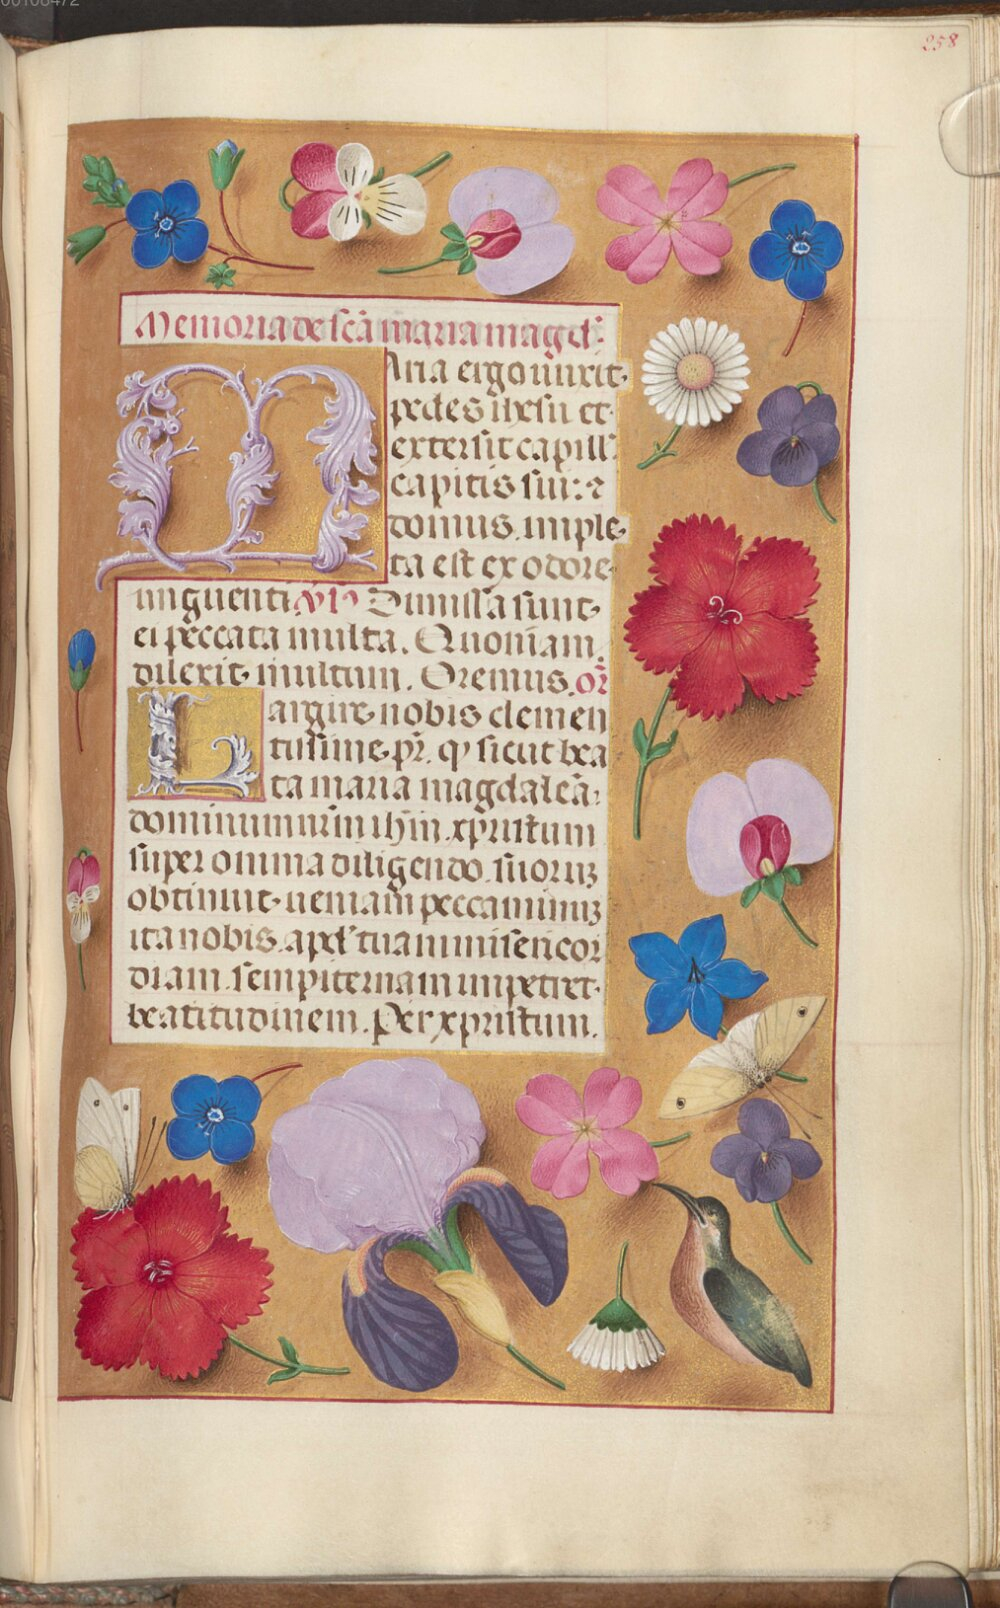 258
Memoria de scā maria magđ:
Maria ergo unxit
pedes ihesu et
extersit capill'
capitis sui: ⁊
domus imple
ta est ex odore
unguenti. V̷s Dimissa sunt
ei peccata multa. Quoniam
dilexit multum. Oremus. or̄
Largire nobis clemen
tissime pr̄. qꝫ sicut bea
ta maria magdaleā
dominum nr̄m ihm̄. xpristum
super omnia diligendo. suorūꝫ
obtinuit veniam peccaminūꝫ
ita nobis. apđ tuam misericor
diam. sempiternam impetret
beatitudinem. Per xpristum.